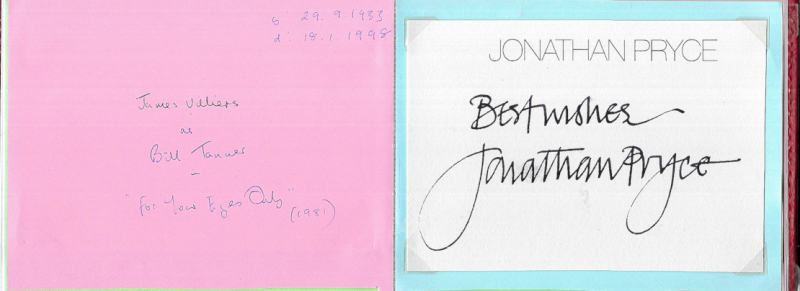 b: 29.9.1933
d: 18.1.1998
James Villiers
as
Bill Tanner
–
"For Your Eyes Only"
(1981)
JONATHAN PRYCE
Best wishes
Jonathan Pryce